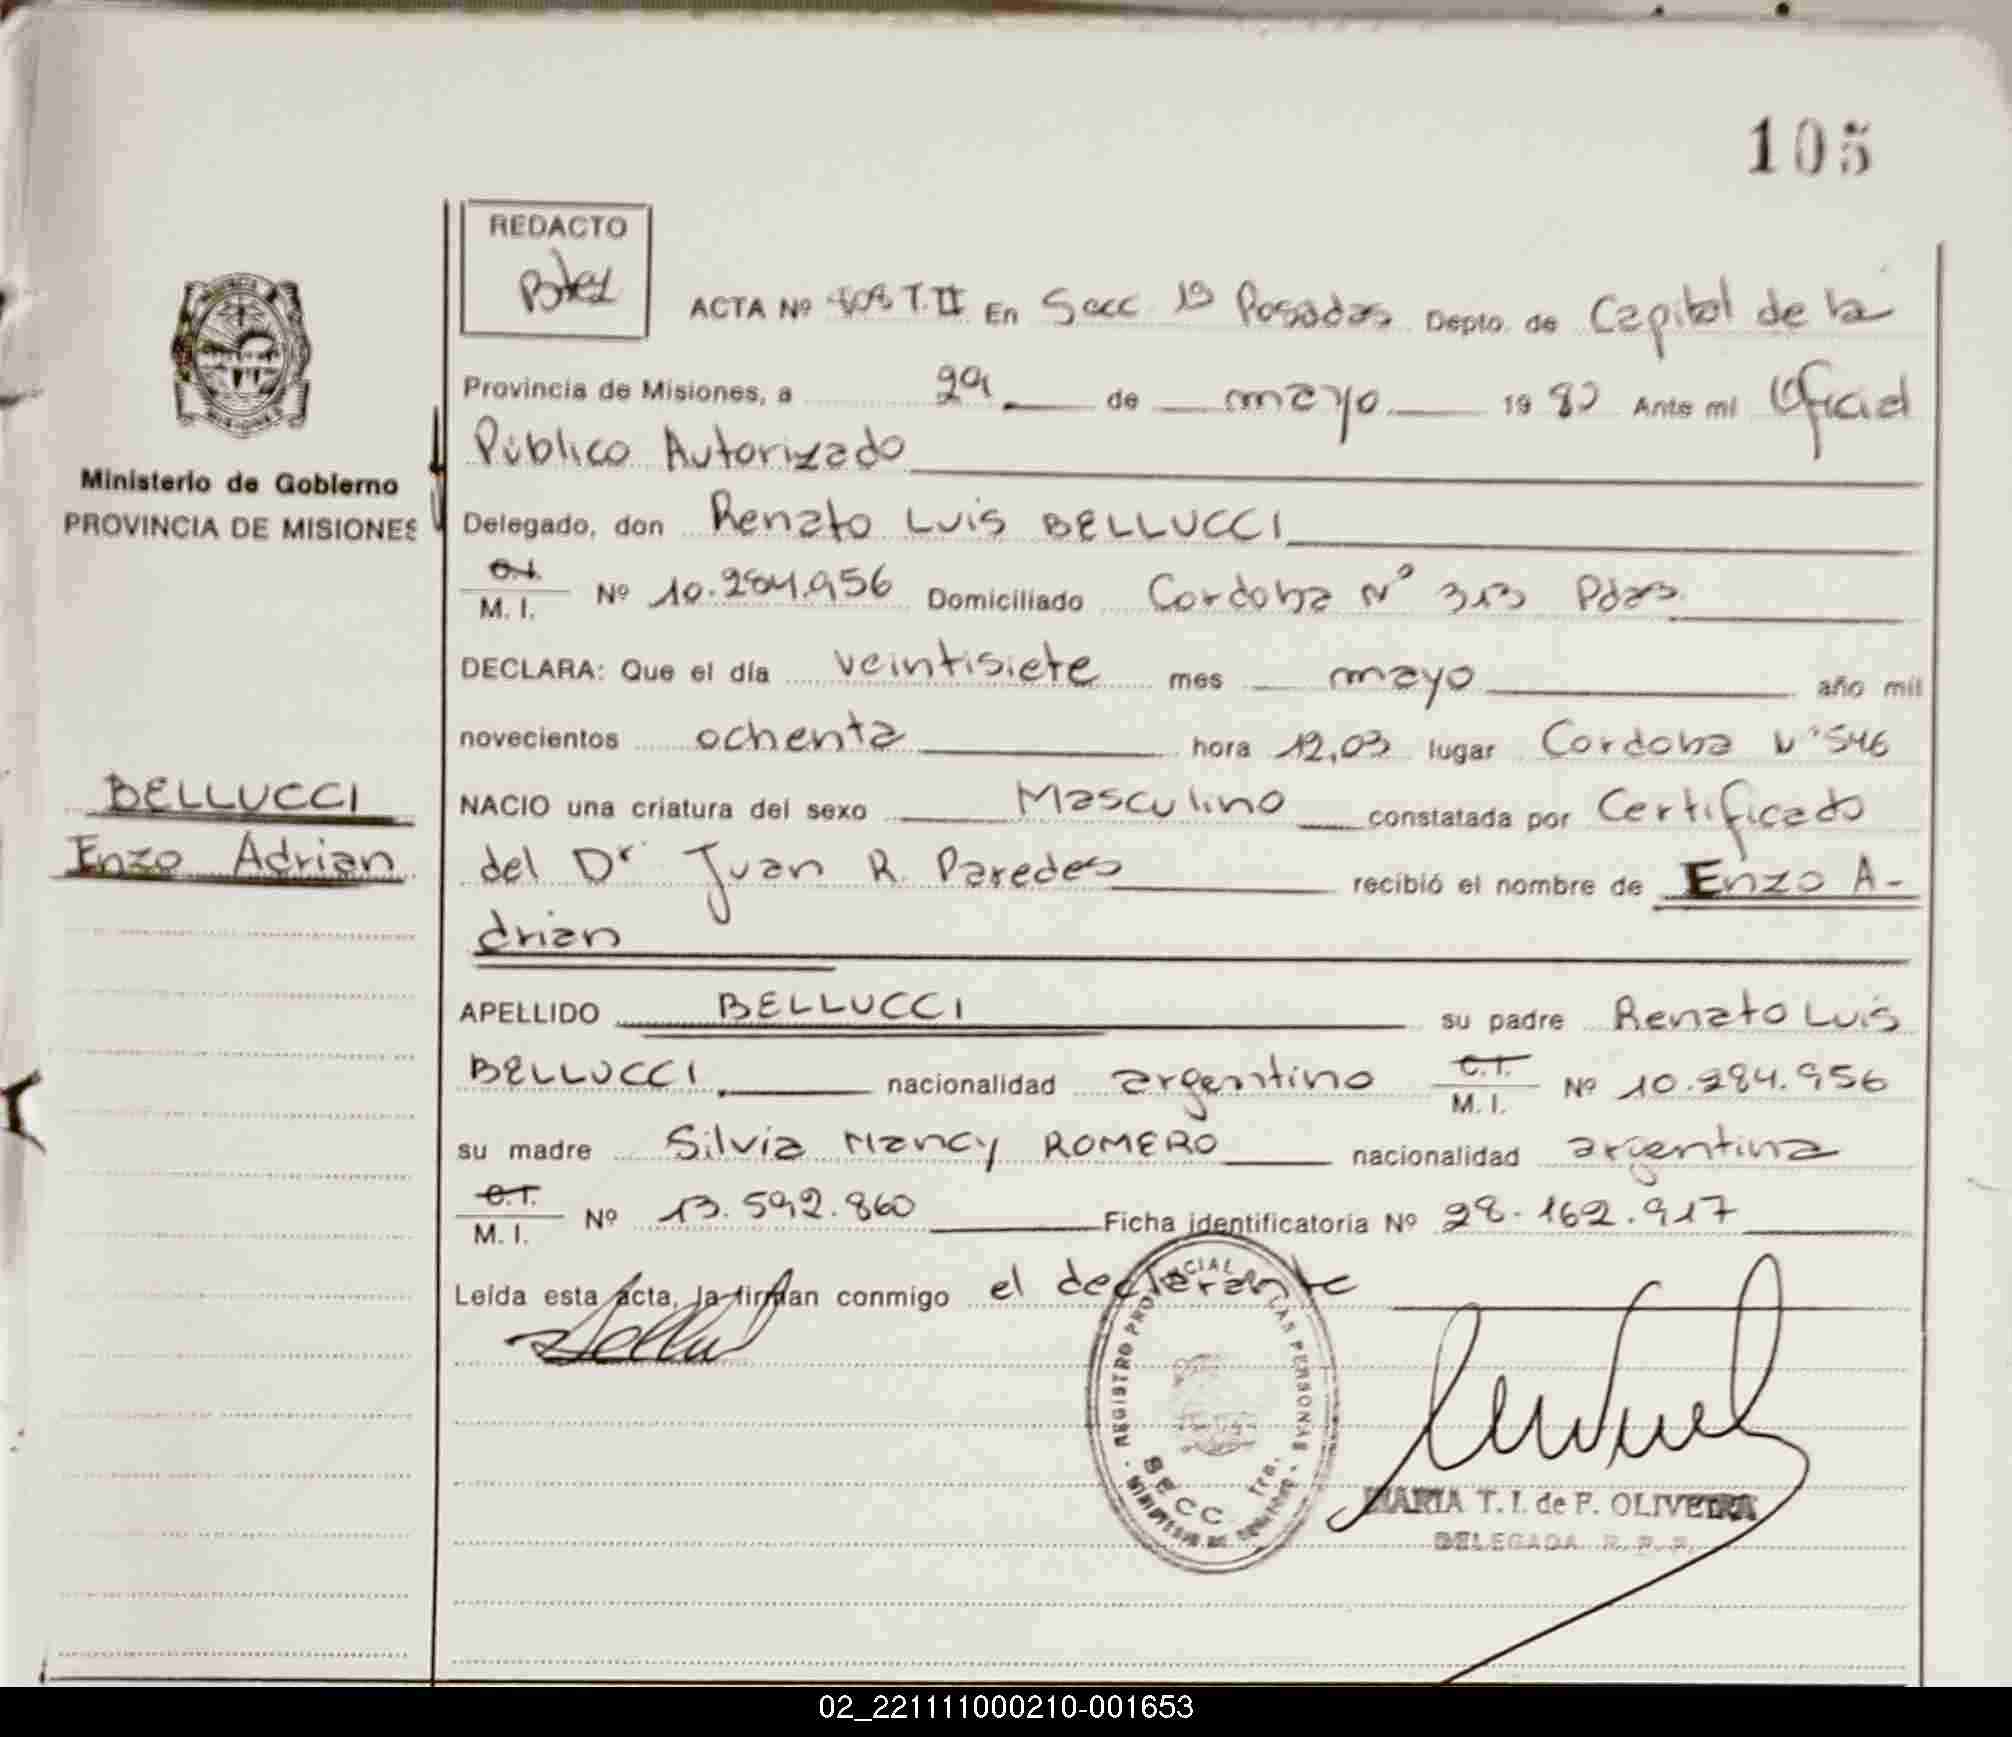 105
REDACTO
ACTA Nº 108 T. II En Secc 1º Posadas Depto. de Capital de la
Provincia de Misiones, a 29 de mayo 1980 Ante mi Oficial
Público Autorizado
Ministerio de Gobierno
PROVINCIA DE MISIONES
Delegado, don Renato Luis BELLUCCI
C.I.
M. I. Nº 10.284.956 Domiciliado Cordoba Nº 313 Pdas
DECLARA: Que el día veintisiete mes mayo año mil
novecientos ochenta hora 12,03 lugar Cordoba Nº 546
BELLUCCI
Enzo Adrian
NACIO una criatura del sexo Masculino constatada por Certificado
del Dr Juan R. Paredes recibió el nombre de Enzo A-
drian
APELLIDO BELLUCCI su padre Renato Luis
BELLUCCI nacionalidad argentino C.I. M. I. Nº 10.284.956
su madre Silvia Nancy ROMERO nacionalidad argentina
C.I.
M. I. Nº 13.592.860 Ficha identificatoria Nº 28.162.917
Leída esta acta, la firman conmigo el declarante
REGISTRO PROVINCIAL DE LAS PERSONAS
SECC 1ra.
MINISTERIO DE GOBIERNO
MARIA T. I. de F. OLIVEIRA
DELEGADA R. P. P.
02_221111000210-001653